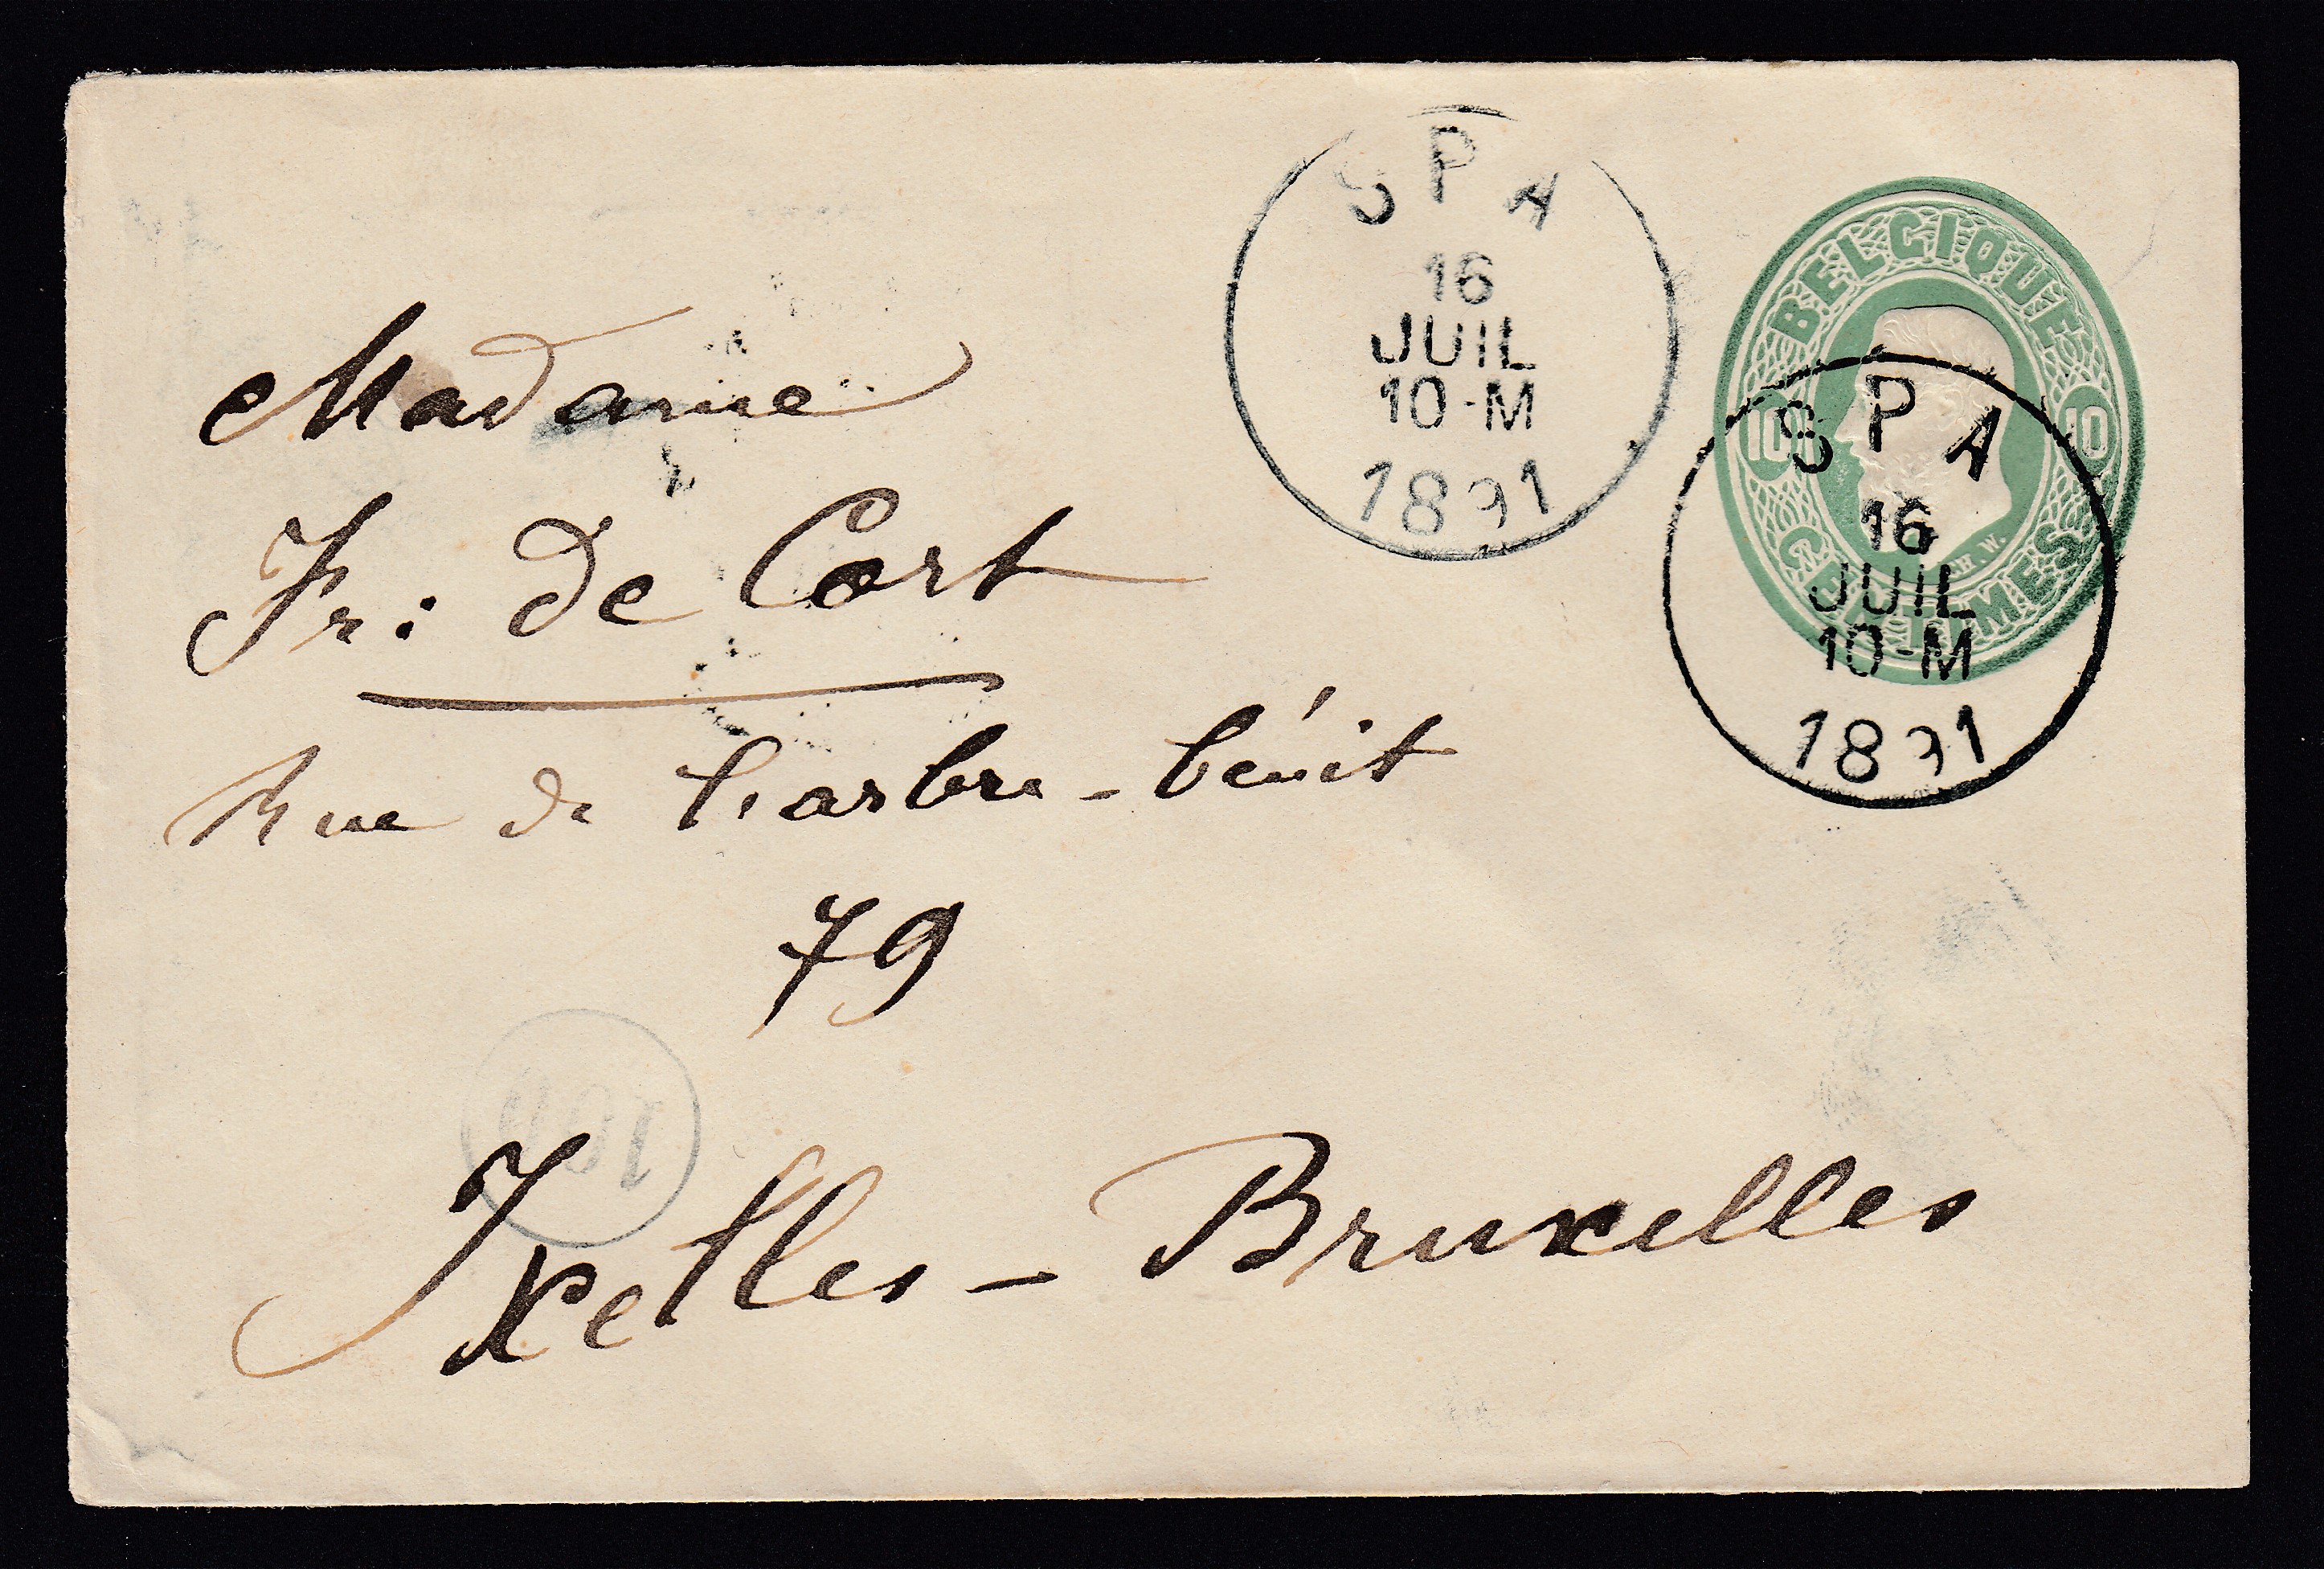 SPA
16
JUIL
10-M
1891
BELGIQUE
10 10
CENTIMES
H.W.
SPA
16
JUIL
10-M
1891
Madame
Fr: de Cort
Rue de l'arbre-bénit
79
100
Ixelles - Bruxelles